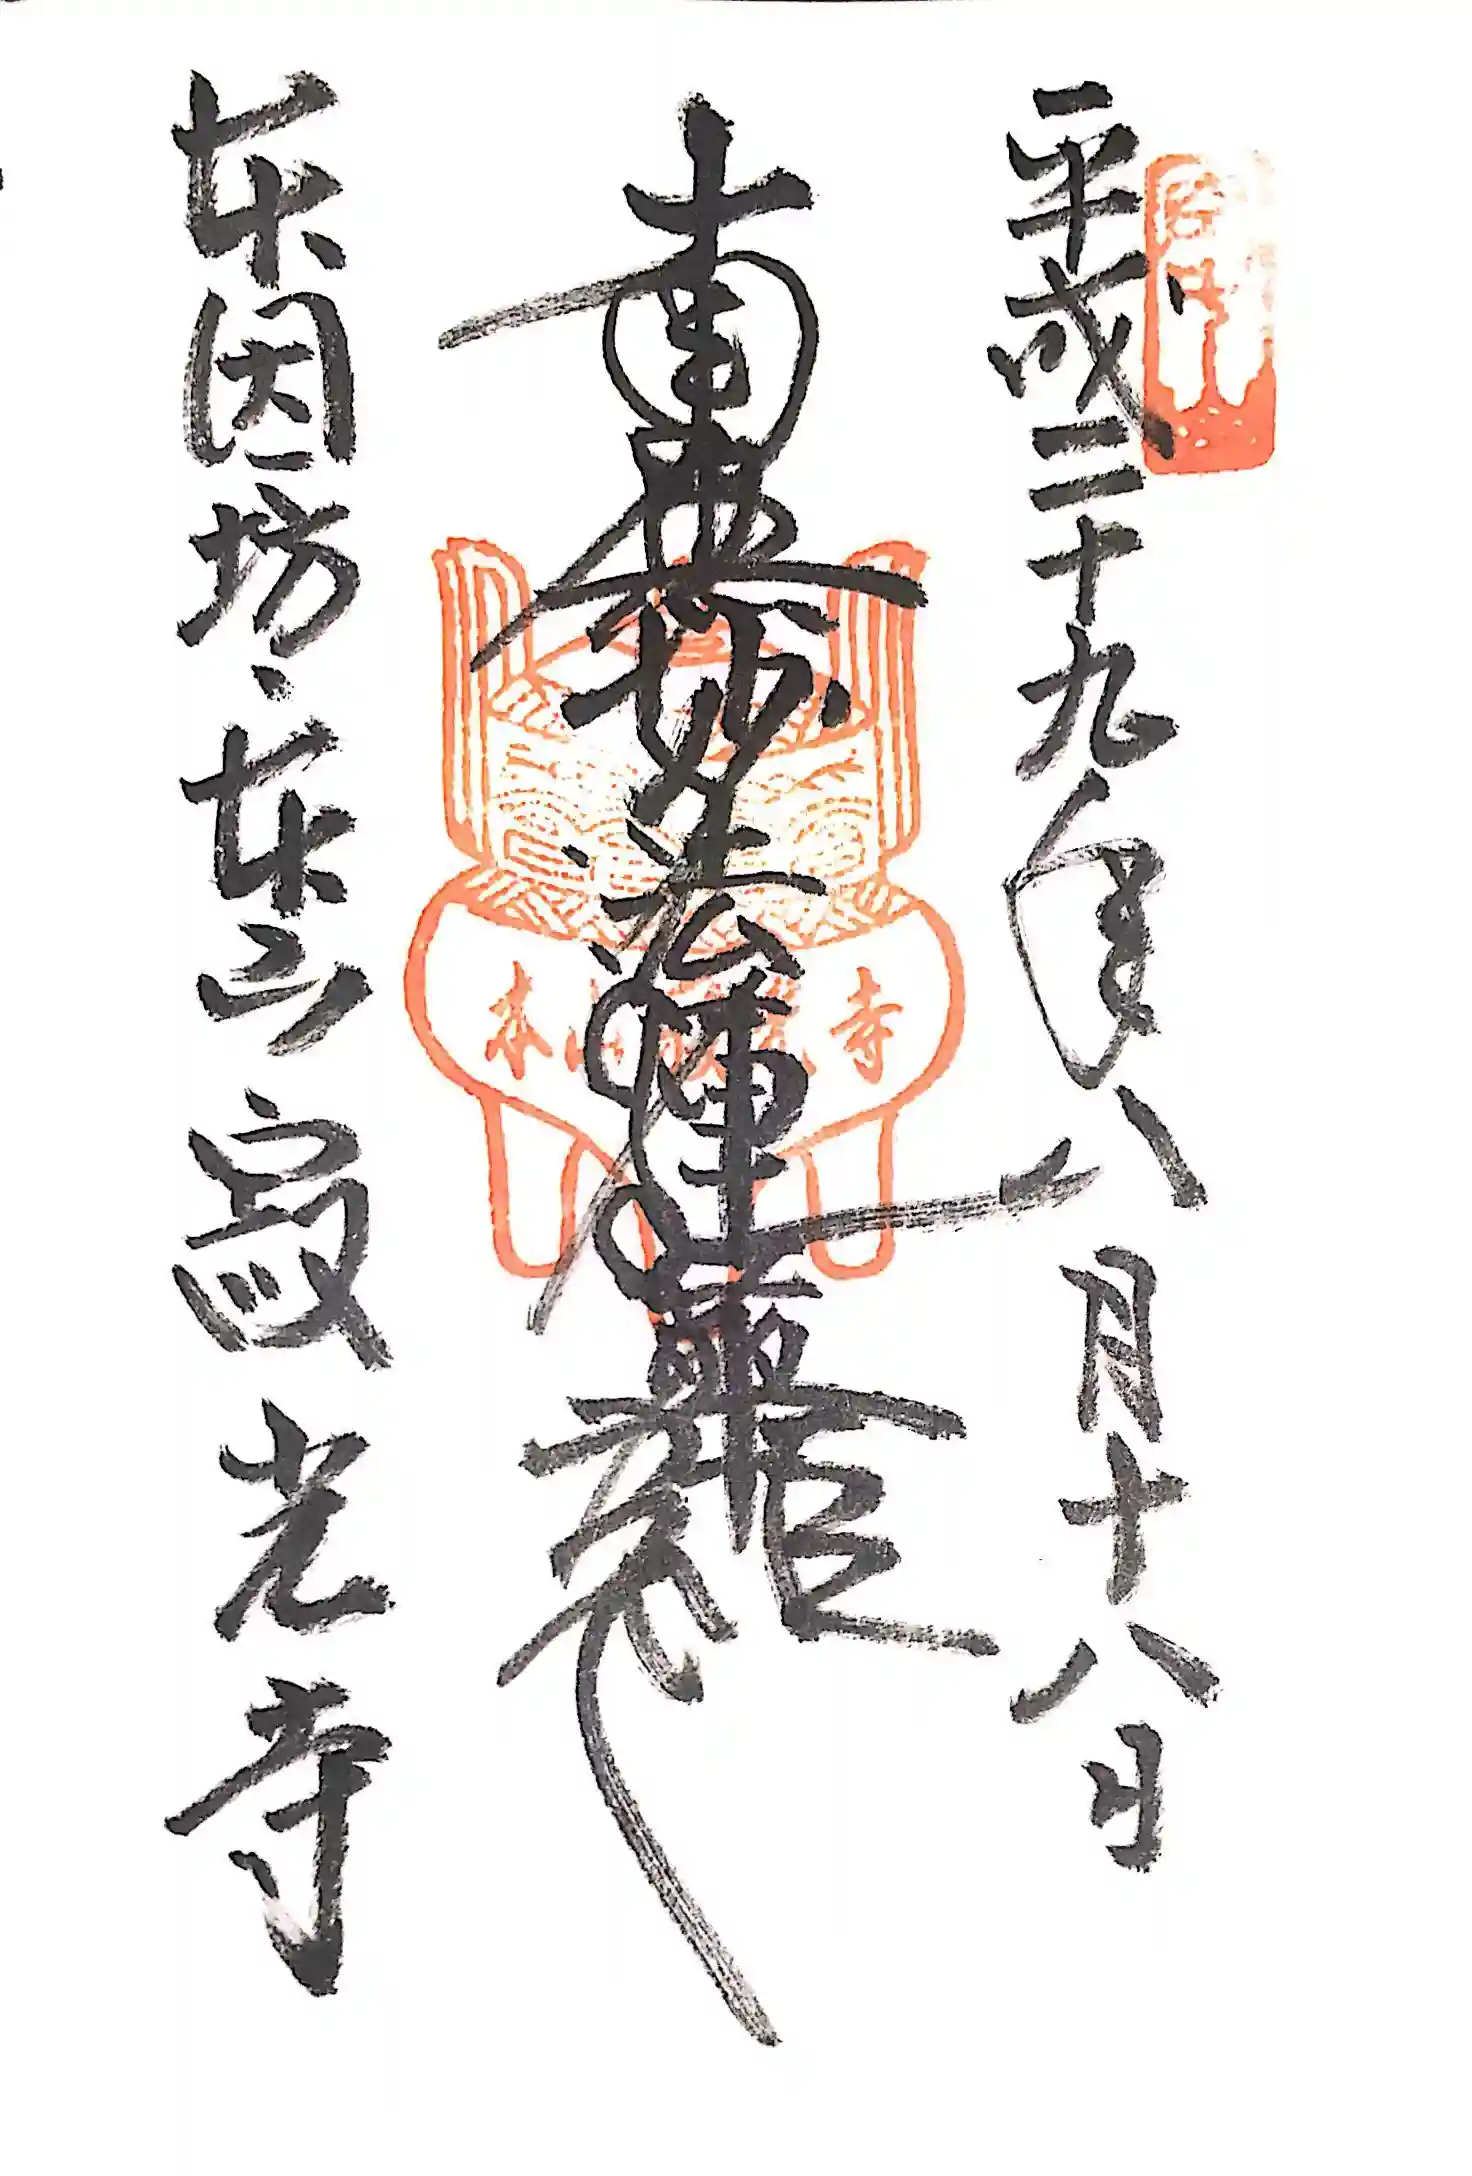 平成二十九年八月十八日
南無妙法蓮華経
本因坊・本山寂光寺
本山寂光寺